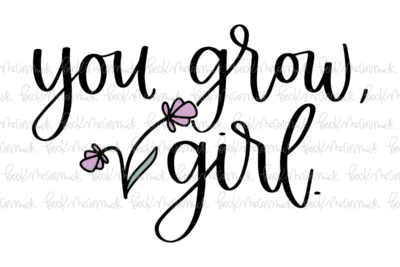 you grow,
girl.